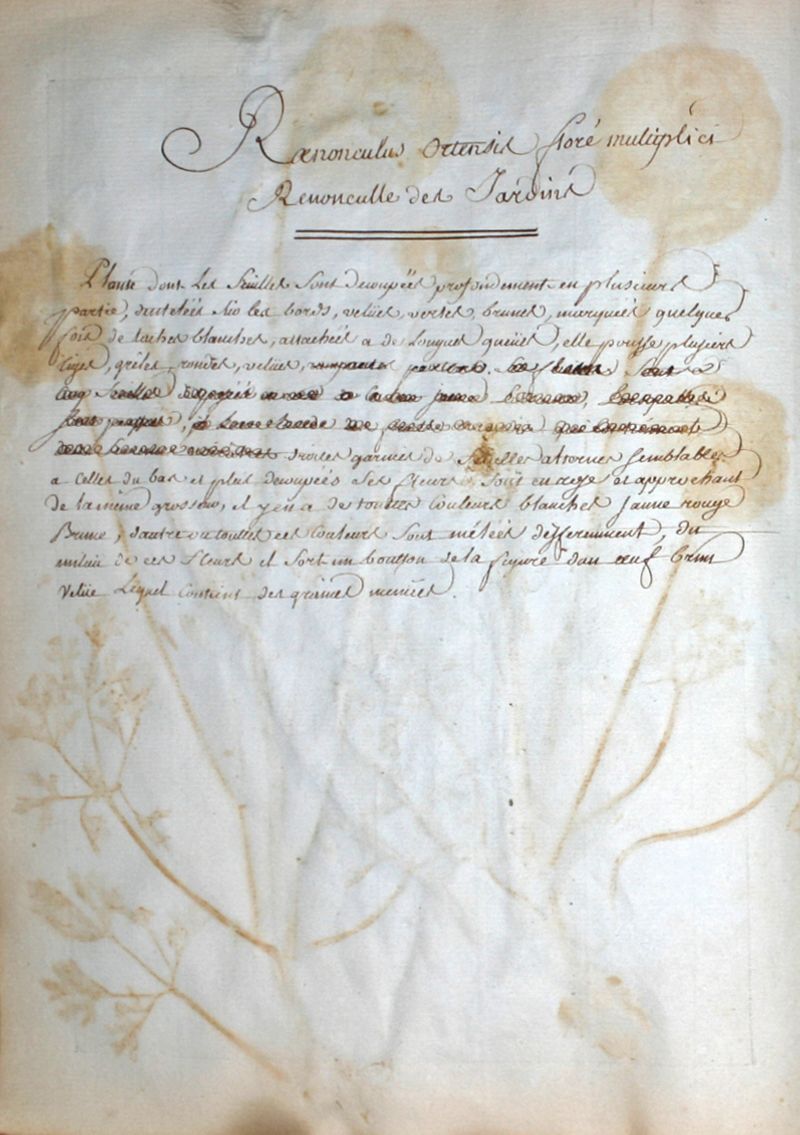 Rænonculus Ortensis floré multiplici
Renonculle des Jardins
Plante dont Les feuilles sont decoupées profondement en plusieurs
partie, dentelées sur les bords, velües, vertes, brunes, marquées quelques
fois de taches blanches, attachées a de Longues queües, elle pousse plusiers
tiges, grêles, rondes, velües,
cinq feuilles jaune
droites garnies de feuilles attornes semblables
a Celles du bas et plus decoupées ses fleurs sont en roze et approchant
de la même grosseur, il y en a de touttes Couleurs blanches Jaune rouge
Brune, d'autre ou touttes ces Couleurs sont mélées differenment, du
milieu de ces fleurs il sort un boutton de la figure d'un œuf brun
velüe Lequel contient des graines menües.